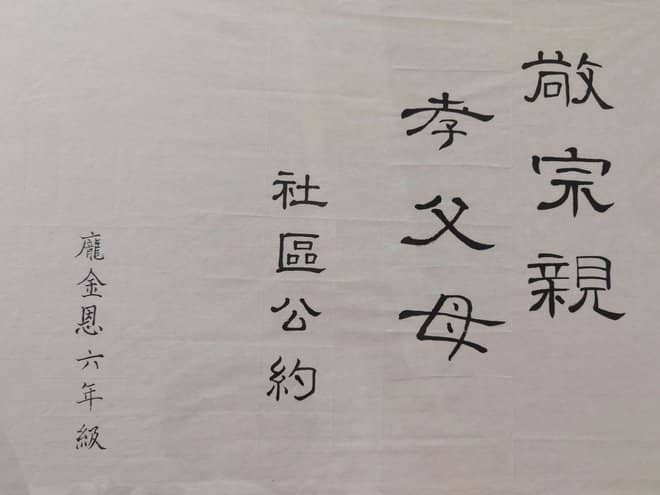 敞宗親
孝父母
社區公約
龐金恩六年級